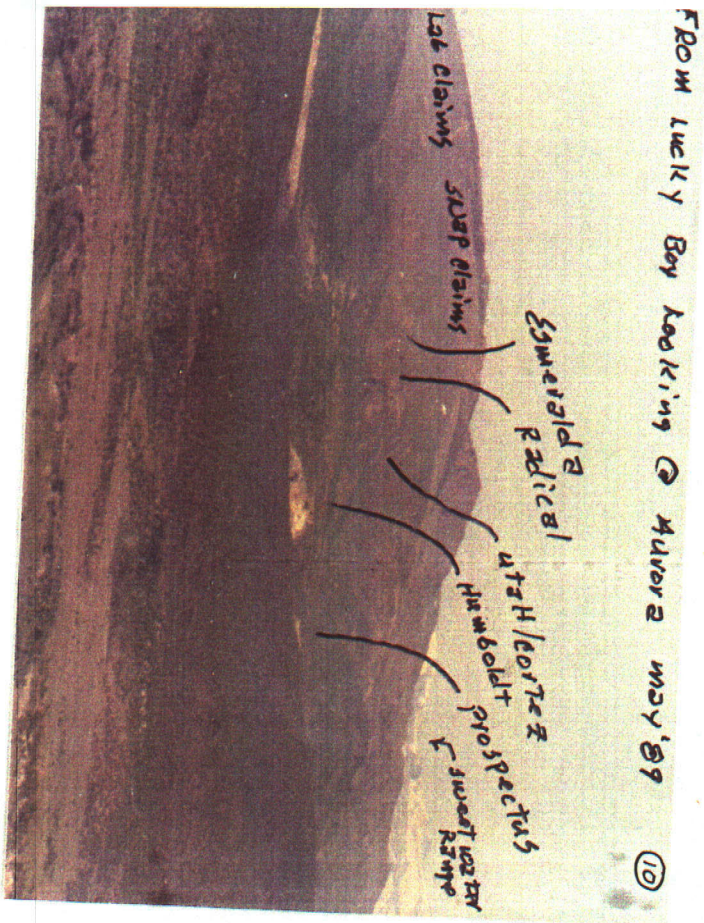 FROM Lucky Boy Looking @ Auvora may '89
10
Lab Claims
SNAP Claims
Esmeralda
Radical
utaH/Cortez
Humboldt
prospectus
Sweetwater
Range